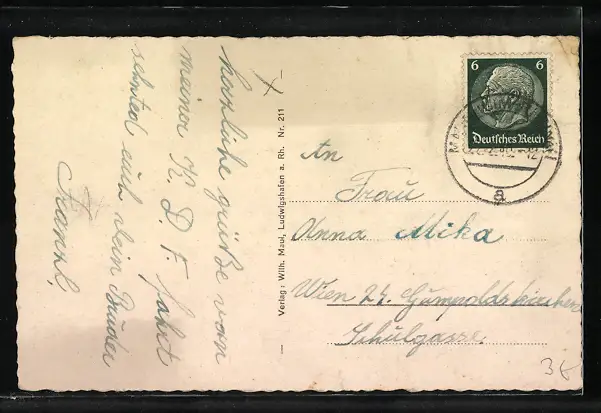 herzliche grüße von
meiner K. D. F. fahrt
sehnted euch dein Bruder
Frannl.
Verlag: Wilh. Maul, Ludwigshafen a. Rh. Nr. 211
6 6
Deutsches Reich
a
An
Frau
Anna Mika
Wien 24. Gumpoldskirchen
Schulgasse.
3€